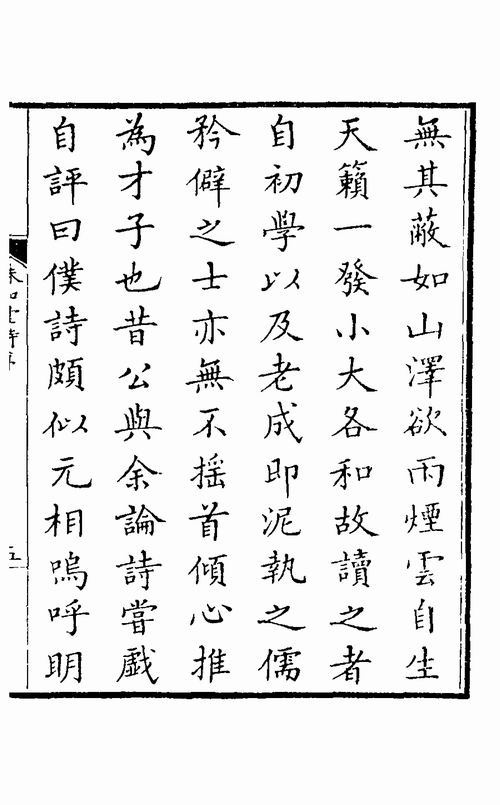 無其蔽如山澤欲雨煙雲自生
天籟一發小大各和故讀之者
自初學以及老成即泥執之儒
矜僻之士亦無不摇首傾心推
為才子也昔公與余論詩嘗戲
自評曰僕詩頗似元相嗚呼明
五